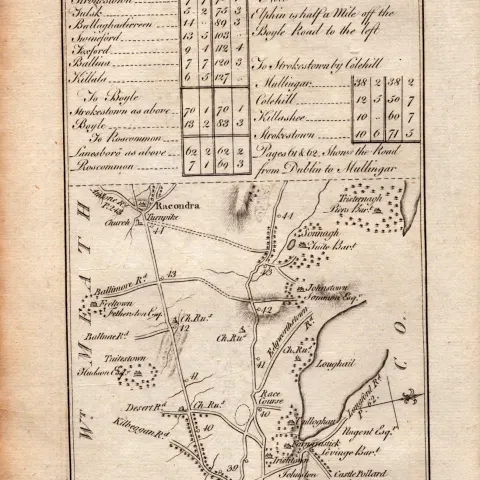 Strokestown
Tulsk 5 2 75 3
Ballaghadireen 14 .. 89 3
Swineford 13 5 103 ..
Foxford 9 4 112 4
Ballina 7 7 120 3
Killala 6 5 127 ..
To Boyle
Strokestown as above 70 1 70 1
Boyle 13 2 83 3
To Roscommon
Lanesboro' as above 62 2 62 2
Roscommon 7 1 69 3
Elphin is half a Mile off the
Boyle Road to the left
To Strokestown by Colehill
Mullingar 38 2 38 2
Colehill 12 5 50 7
Killashee 10 .. 60 7
Strokestown 10 6 71 5
Pages 61 & 62, Shows the Road
from Dublin to Mullingar
Racondra
Turnpike
Church
44
44
Tristernagh
Piers Bart.
Sonnagh
Tuite Bart.
43
43
Ballimore Rd.
Johnstown
42
Fetherston Esq.
Ch. Ru.
42
Ballnae Rd.
Ch. Ru.
Edgworthstown
Rd.
Ch. Ru.
Tuitestown
Hudson Esq.
41
41
Loughail
CO.
WT. MEATH
Race
Course
Desert Rd.
Ch. Ru.
40
40
Kilbeggan Rd.
Longford Rd.
Nugent Esq.
Levinge Bart.
39
Irishtown
Johnston
Castle Pollard